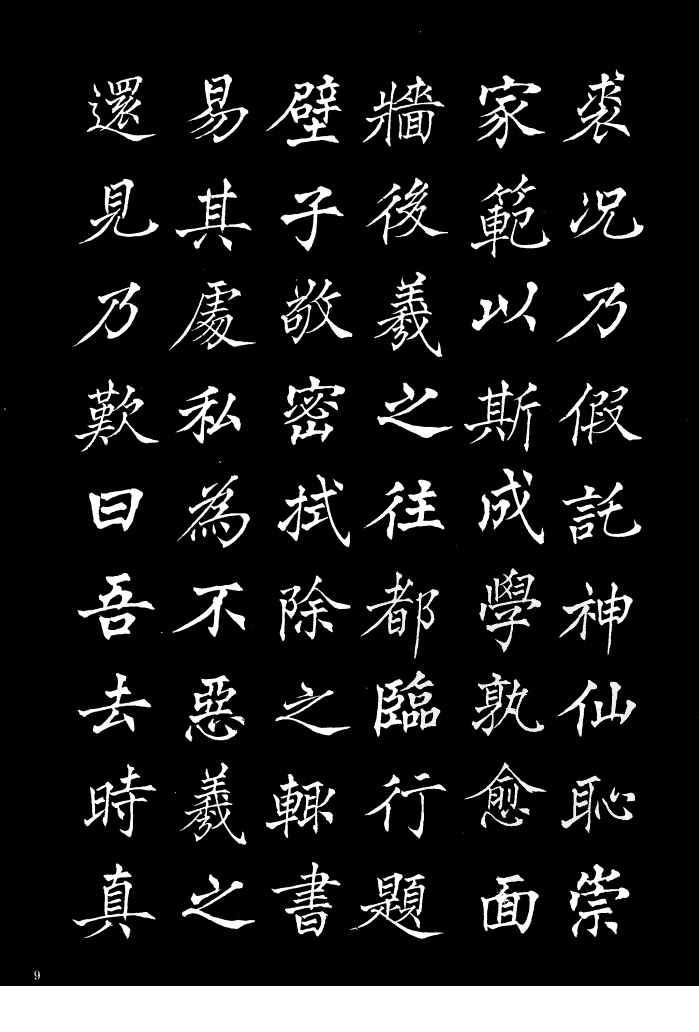 裘况乃假託神仙恥崇
家範以斯成學孰愈面
牆後羲之往都臨行題
壁子敬密拭除之輙書
易其處私為不惡羲之
還見乃歎曰吾去時真
9